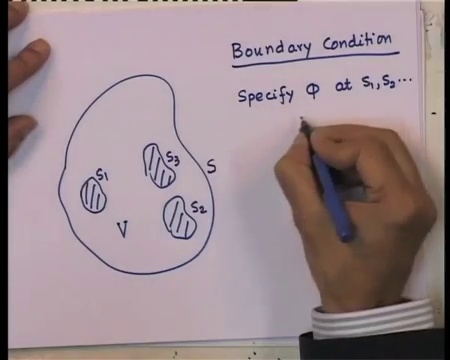 Boundary Condition
Specify Φ at S1, S2...
S3
S
S1
S2
V